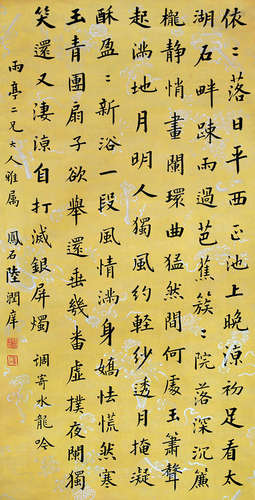 依〻落日平西正池上晚涼初足看太
湖石畔踈雨過芭蕉簇〻院落深沉簾
櫳靜悄畫闌環曲猛然間何處玉簫聲
起滿地月明人獨風約輕紗透月掩凝
酥盈〻新浴一段風情滿身嬌怯慌然寒
玉青團扇子欲舉還垂幾番虛撲夜闌獨
笑還又淒涼自打滅銀屏燭 調寄水龍吟
雨亭二兄大人雅属 鳳石陸潤庠